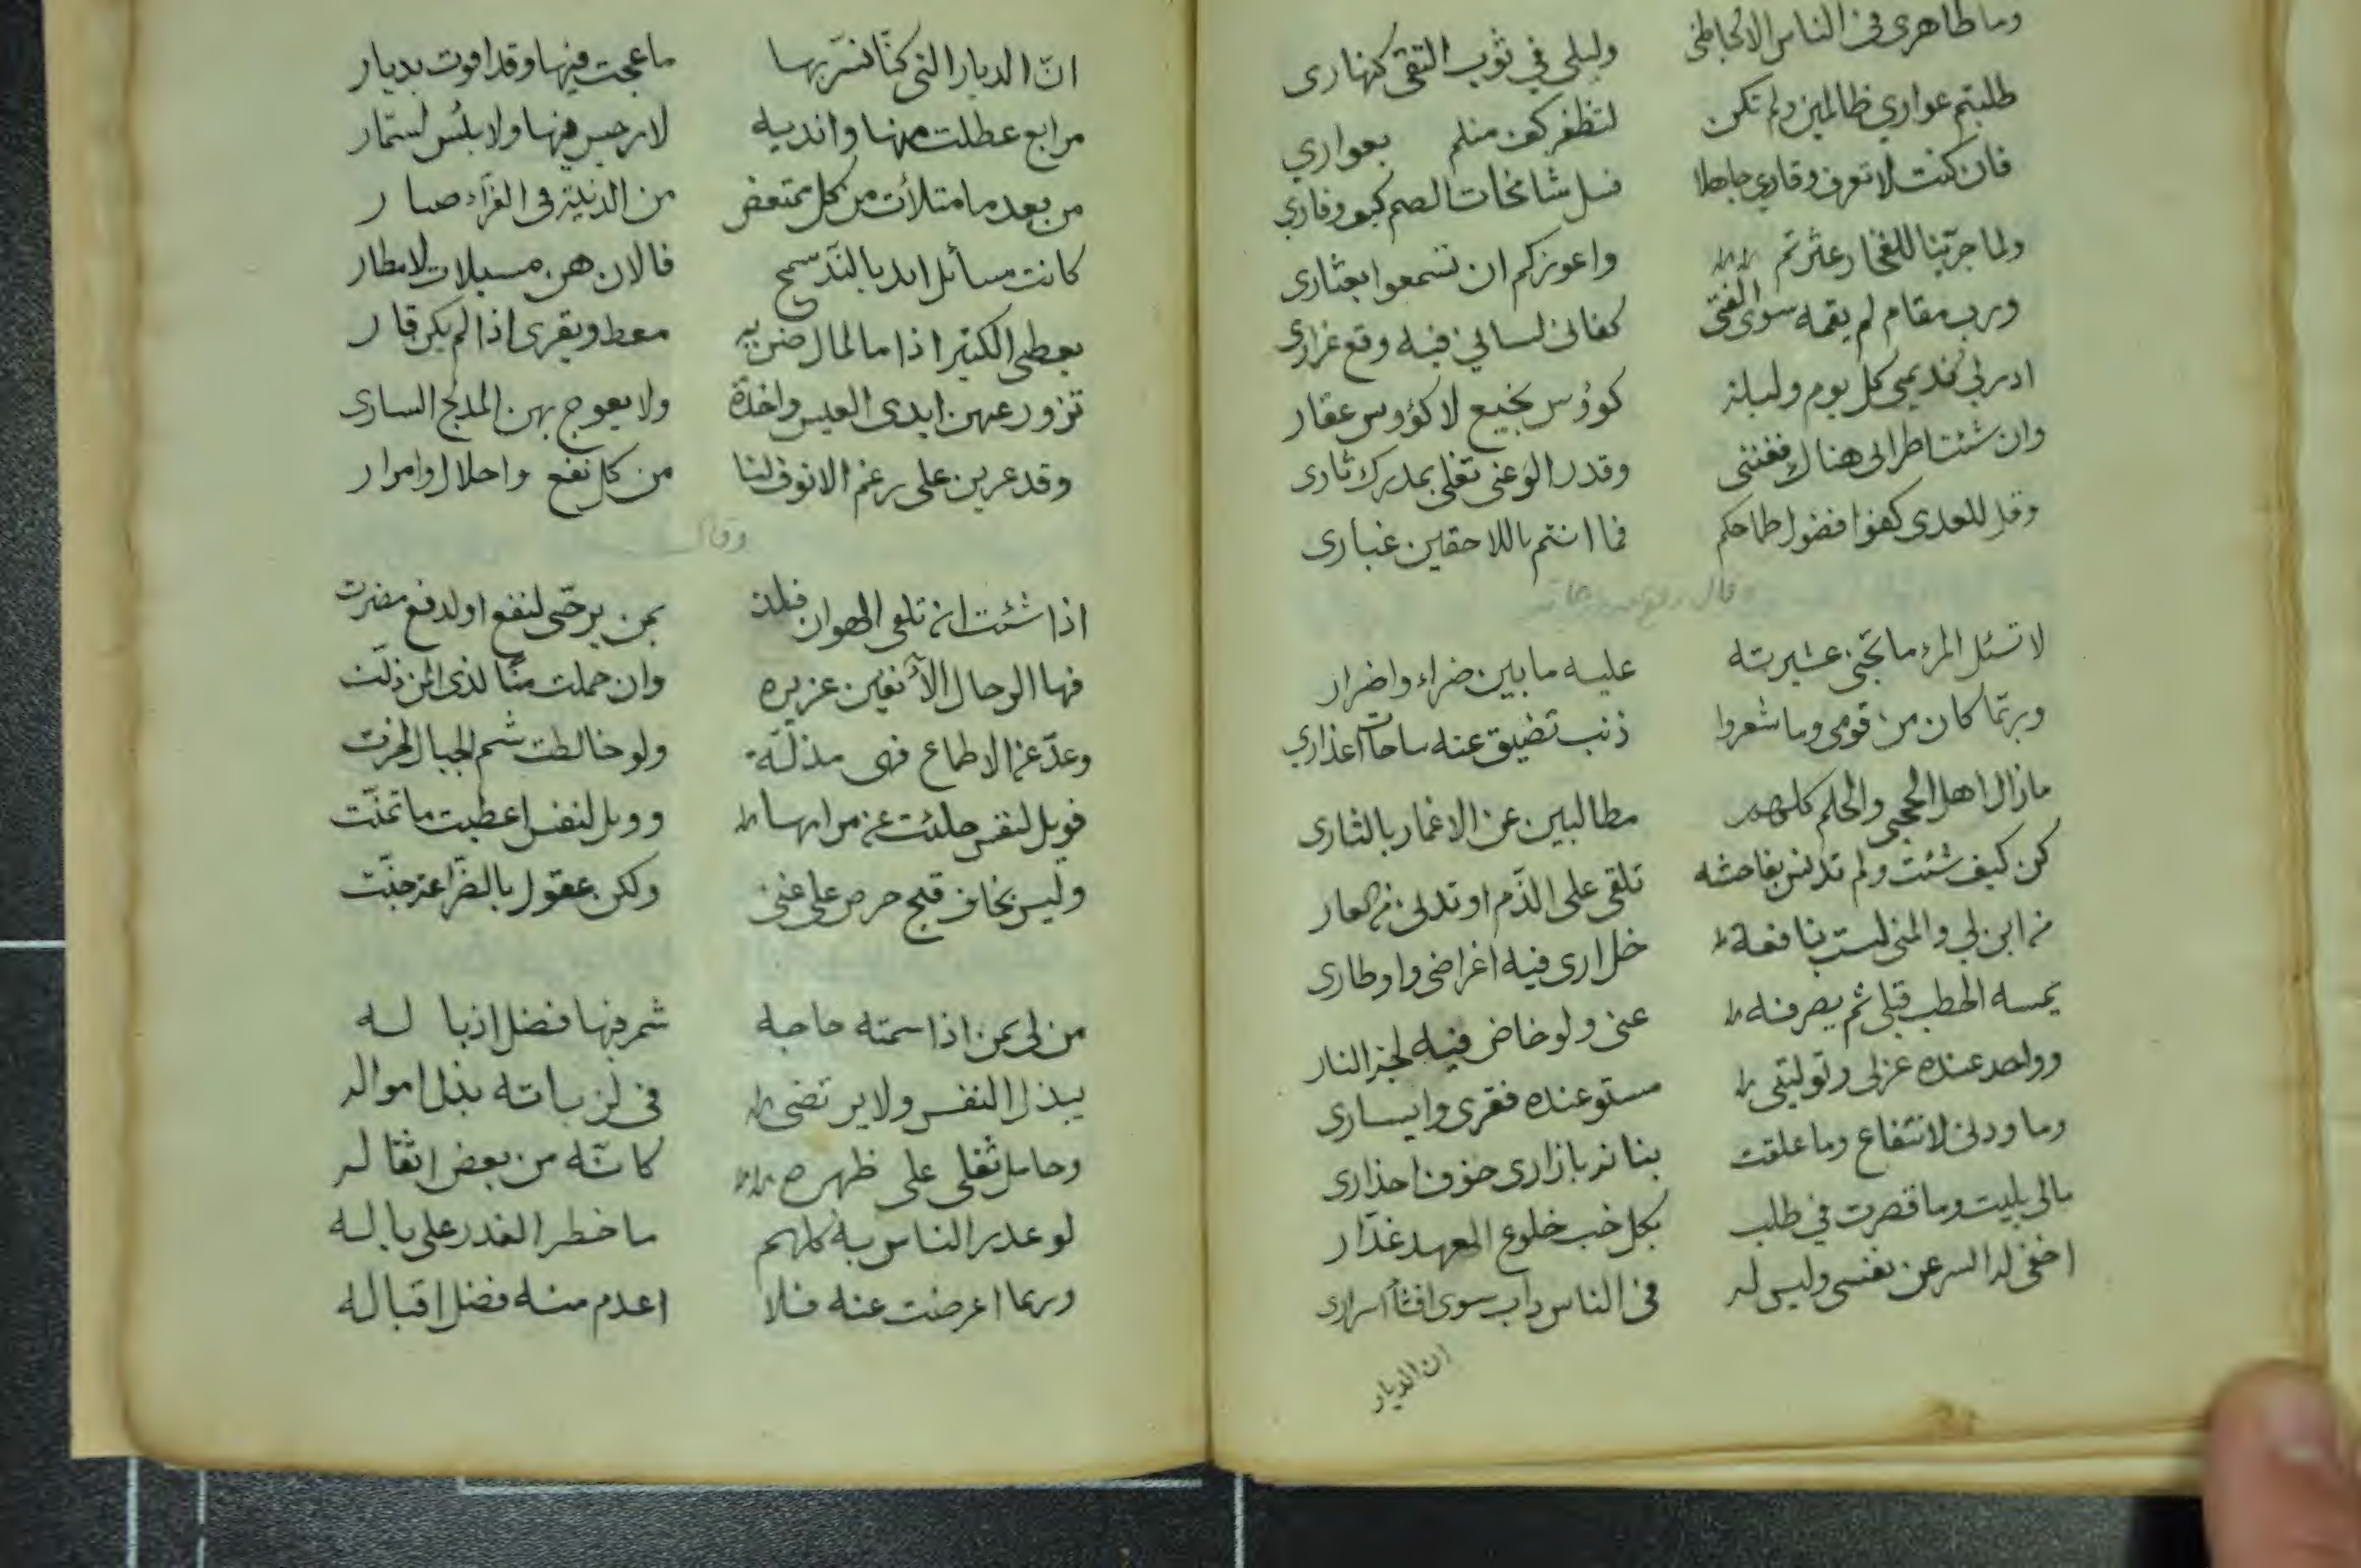 وما ظاهري في الناس الا كباطني وليلي في ثوب التقى كنهاري
طلبتم عواري ظالمين ولم تكن لتظفر كف منكم بعواري
فان كنت لا تعرف وقاري جاهلا فسل شامخات الصم كيف وقاري
ولما جرينا للفخار عثرتم واعوزكم ان تسمعوا بعثاري
ورب مقام لم يقمه سوى الفتى كفاني لساني فيه وقع غراري
ادر لي نديمي كل يوم وليلة كؤوس نجيع لا كؤوس عقار
وان شئت اطرابي هناك فغنني وقدر الوغى تغلي بمدرك ثاري
وقل للعدى كفوا فضول طماحكم فما انتم باللاحقين غباري
وقال
لا تسئل المرء ما تجني عشيرته عليه ما بين ضراء واضرار
وربما كان من قومي وما شعروا ذنب تضيق عنه ساحات اعذاري
مازال اهل الحجى والحلم كلهم مطالبين عن الاغمار بالثاري
كن كيف شئت ولم تدنس بفاحشه تلقى على الذم او تدني من العار
من اين لي والمنى ليست بنافعة خل ارى فيه اغراضي واوطاري
يمسه الخطب قبلي ثم يصرفه عني ولو خاض فيه لجة النار
وواحد عنده عزلي وتوليتي مستو عنده فقري وايساري
وما ودني لانتفاع وما علقت بنانه بازاري خوف احذاري
مالي بليت وما قصرت في طلب بكل خب خلوع العهد غدار
اخفي له السر عن نفسي وليس له في الناس داب سوى افشاء اسراري
ان الديار
ان الديار التي كنا نسر بها ما عجت فيها وقد اقوت بديار
مرابع عطلت منها واندية لا نرجس فيها ولا بلبس لستمار
من بعد ما امتلأت من كل ممتعض من الدنية في الغراء صبار
كانت مسائل ايد بالندى سمح فالان هن مسيلات لامطار
يعطي الكثير اذا ما المال ضن به معط ويقرى اذا لم يكن قار
تزور عنهن ايدى العيس واخدة ولا يعوج بهن المدلج السارى
وقد عرين على رغم الانوف لنا من كل نفع واحلال وامرار
وقال
اذا شئت ان تلقى الهوان فلذ بمن يرجى لنفع او لدفع مضرت
فها الرجال الآنفين عزيزه وان حملت منا لذى المن ذلت
وعد عن الاطماع فهي مذلة ولو خالطت شم الجبال لخرت
فويل لنفس حلئت عن مرامها وويل لنفس اعطيت ما تمنت
وليس بخاف قبح حرص على غنى ولكن عقول بالضراعة جنت
من لي بمن اذا سمته حاجه شمر فيها فضل اذياله
يبذل النفس ولا يرتضى في لزباته بذل امواله
وحامل ثقلي على ظهره كانه من بعض اثقاله
لو غدر الناس به كلهم ما خطر الغدر على باله
وربما اعرضت عنه فلا اعدم منه فضل اقباله